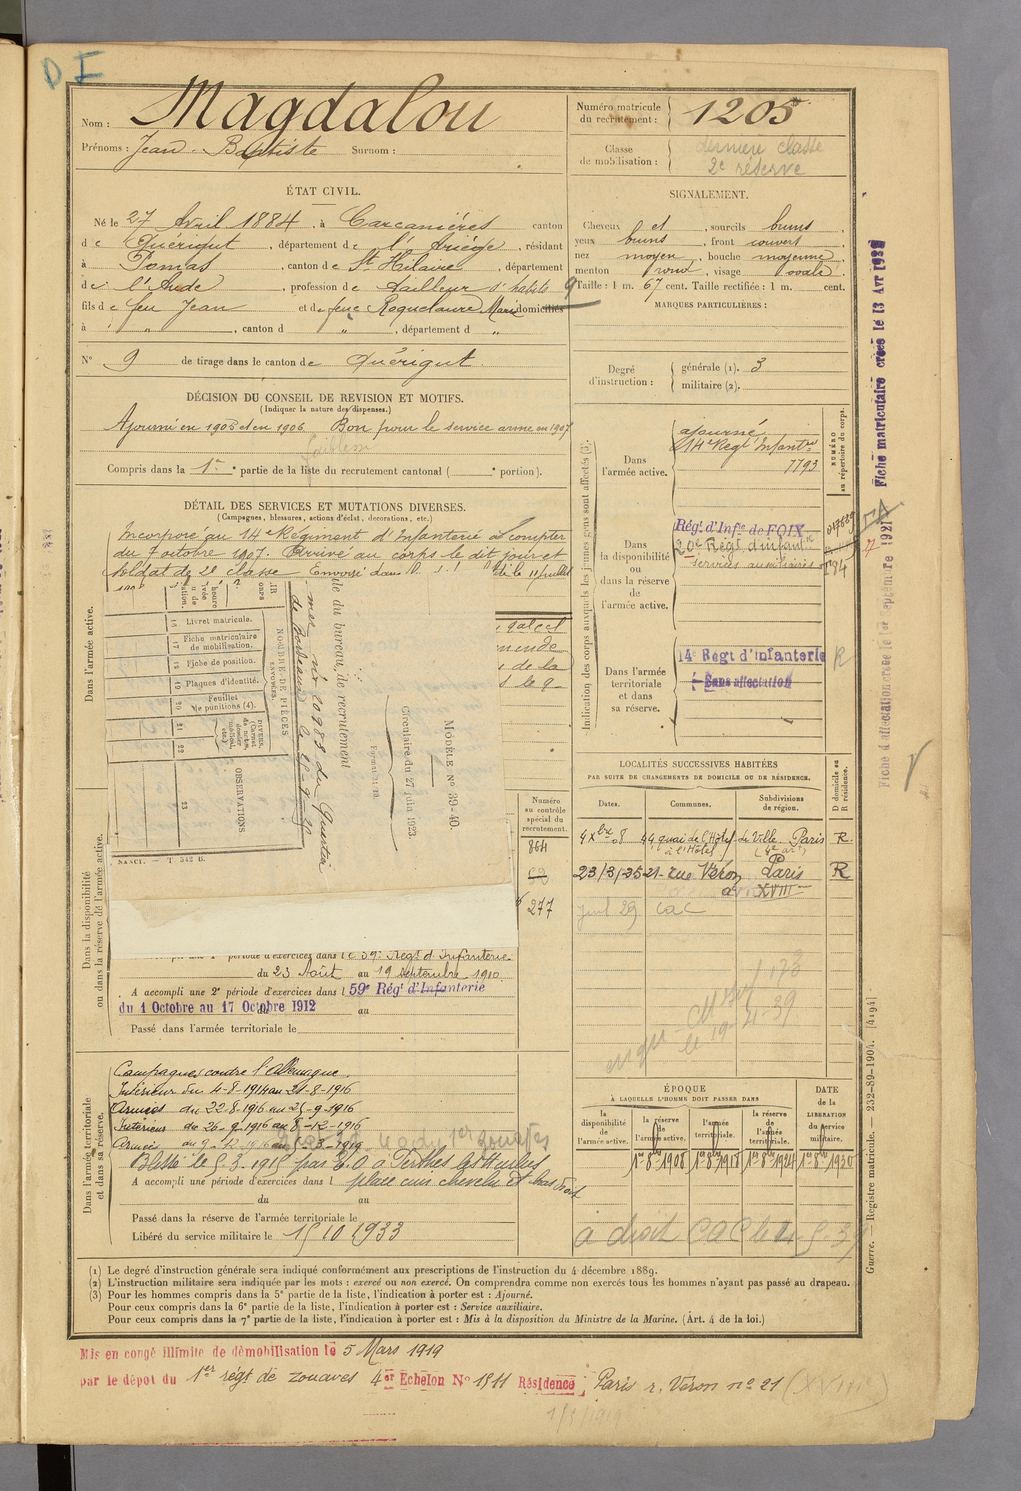 D I
Nom : Magdalou
Prénoms : Jean-Baptiste Surnom :
Numéro matricule du recrutement : 1205
Classe de mobilisation : dernière classe
2e réserve
ÉTAT CIVIL.
Né le 27 Avril 1884, à Carcanières canton
de Quérigut, département de l'Ariège, résidant
à Pomas, canton de St Hilaire, département
de l'Aude, profession de tailleur d'habits
fils de feu Jean et de feue Roquelaure Marie domiciliés
à " , canton d " , département d "
N° 9 de tirage dans le canton de Quérigut
SIGNALEMENT.
Cheveux et , sourcils bruns ,
yeux bruns , front couvert ,
nez moyen , bouche moyenne ,
menton rond , visage ovale .
Taille : 1 m. 67 cent. Taille rectifiée : 1 m. cent.
MARQUES PARTICULIÈRES :
9
Degré d'instruction :
générale (1). 3
militaire (2).
DÉCISION DU CONSEIL DE REVISION ET MOTIFS.
(Indiquer la nature des dispenses.)
Ajourné en 1905 et en 1906 Bon pour le service armé en 1907
faiblesse
Compris dans la 1re partie de la liste du recrutement cantonal ( e portion).
DÉTAIL DES SERVICES ET MUTATIONS DIVERSES.
(Campagnes, blessures, actions d'éclat, décorations, etc.)
Incorporé au 14e Régiment d'Infanterie à compter
du 7 octobre 1907. Arrivé au corps le dit jour et
soldat de 2e classe Envoyé dans
le 11 juillet
Dans l'armée active.
de du bureau de recrutement
mer n° 10983 du Quartier
de Bordeaux
MODÈLE N° 39-40.
Circulaire du 27 juin 1923.
NOMBRE DE PIÈCES
ENVOYÉES.
Livret matricule.
Fiche matriculaire de mobilisation.
Fiche de position.
Plaques d'identité.
Feuillet de punitions (4).
DIVERS.
16
17
18
19
20
21
22
23
OBSERVATIONS
NANCI. — T. 542 B.
Indication des corps auxquels les jeunes gens sont affectés (3).
NUMÉRO au répertoire du corps.
Dans l'armée active.
ajourné
14e Régt Infantrie
7793
Dans la disponibilité ou dans la réserve de l'armée active.
Régt d'Infie de FOIX
20e Régt d'infantie
Services auxiliaires
Dans l'armée territoriale et dans sa réserve.
14e Régt d'Infanterie
Sans affectation
R
Fiche matriculaire créée le 13 Avr 1932
Fiche d'affectation créée le 1er Septembre 1921
LOCALITÉS SUCCESSIVES HABITÉES
PAR SUITE DE CHANGEMENTS DE DOMICILE OU DE RÉSIDENCE.
D domicile ou R résidence.
Numéro au contrôle spécial du recrutement.
Dates. Communes. Subdivisions de région.
864 4 Xbre 08 44 quai de l'Hôtel de Ville. Paris R.
à l'Hôtel (4e arrt)
23/3/25 21 rue Véron Paris R
XVIII
277 CAC
le 19-4-39
Dans la disponibilité ou dans la réserve de l'armée active.
période d'exercices dans le 59e Régt d'Infanterie
du 23 Août au 19 septembre 1910
A accompli une 2e période d'exercices dans l 59e Régt d'Infanterie
du 1 Octobre au 17 Octobre 1912 au
Passé dans l'armée territoriale le
Dans l'armée territoriale et dans sa réserve.
Campagnes contre l'Allemagne.
Intérieur du 4-8-1914 au 21-8-1916
Armées du 22-8-1916 au 25-9-1916
Intérieur du 26-9-1916 au 8-12-1916
Armées du 9-12-1916 au 5-3-1919
1er zouaves
Blessé le 5-3-1915 par E.O à Perthes les Hurlus
plaie cuir chevelu et bras droit
A accompli une période d'exercices dans l
du au
Passé dans la réserve de l'armée territoriale le
Libéré du service militaire le 15 10 1933
ÉPOQUE
À LAQUELLE L'HOMME DOIT PASSER DANS
DATE DE LA LIBÉRATION du service militaire.
la disponibilité de l'armée active.
la réserve de l'armée active.
l'armée territoriale.
la réserve de l'armée territoriale.
1er 8bre 1908 1er 8bre 1918 1er 8bre 1924 1er 8bre 1930
a droit CAC le
(1) Le degré d'instruction générale sera indiqué conformément aux prescriptions de l'instruction du 4 décembre 1889.
(2) L'instruction militaire sera indiquée par les mots : exercé ou non exercé. On comprendra comme non exercés tous les hommes n'ayant pas passé au drapeau.
(3) Pour les hommes compris dans la 5e partie de la liste, l'indication à porter est : Ajourné.
Pour ceux compris dans la 6e partie de la liste, l'indication à porter est : Service auxiliaire.
Pour ceux compris dans la 7e partie de la liste, l'indication à porter est : Mis à la disposition du Ministre de la Marine. (Art. 4 de la loi.)
Guerre. — Registre matricule. — 232-89-1904. [4194]
Mis en congé illimité de démobilisation le 5 Mars 1919
par le dépot du 1er régt de zouaves 4er Echelon N° 1511 Résidence Paris r. Véron n° 21 (XVIIIe)
1/3/1919